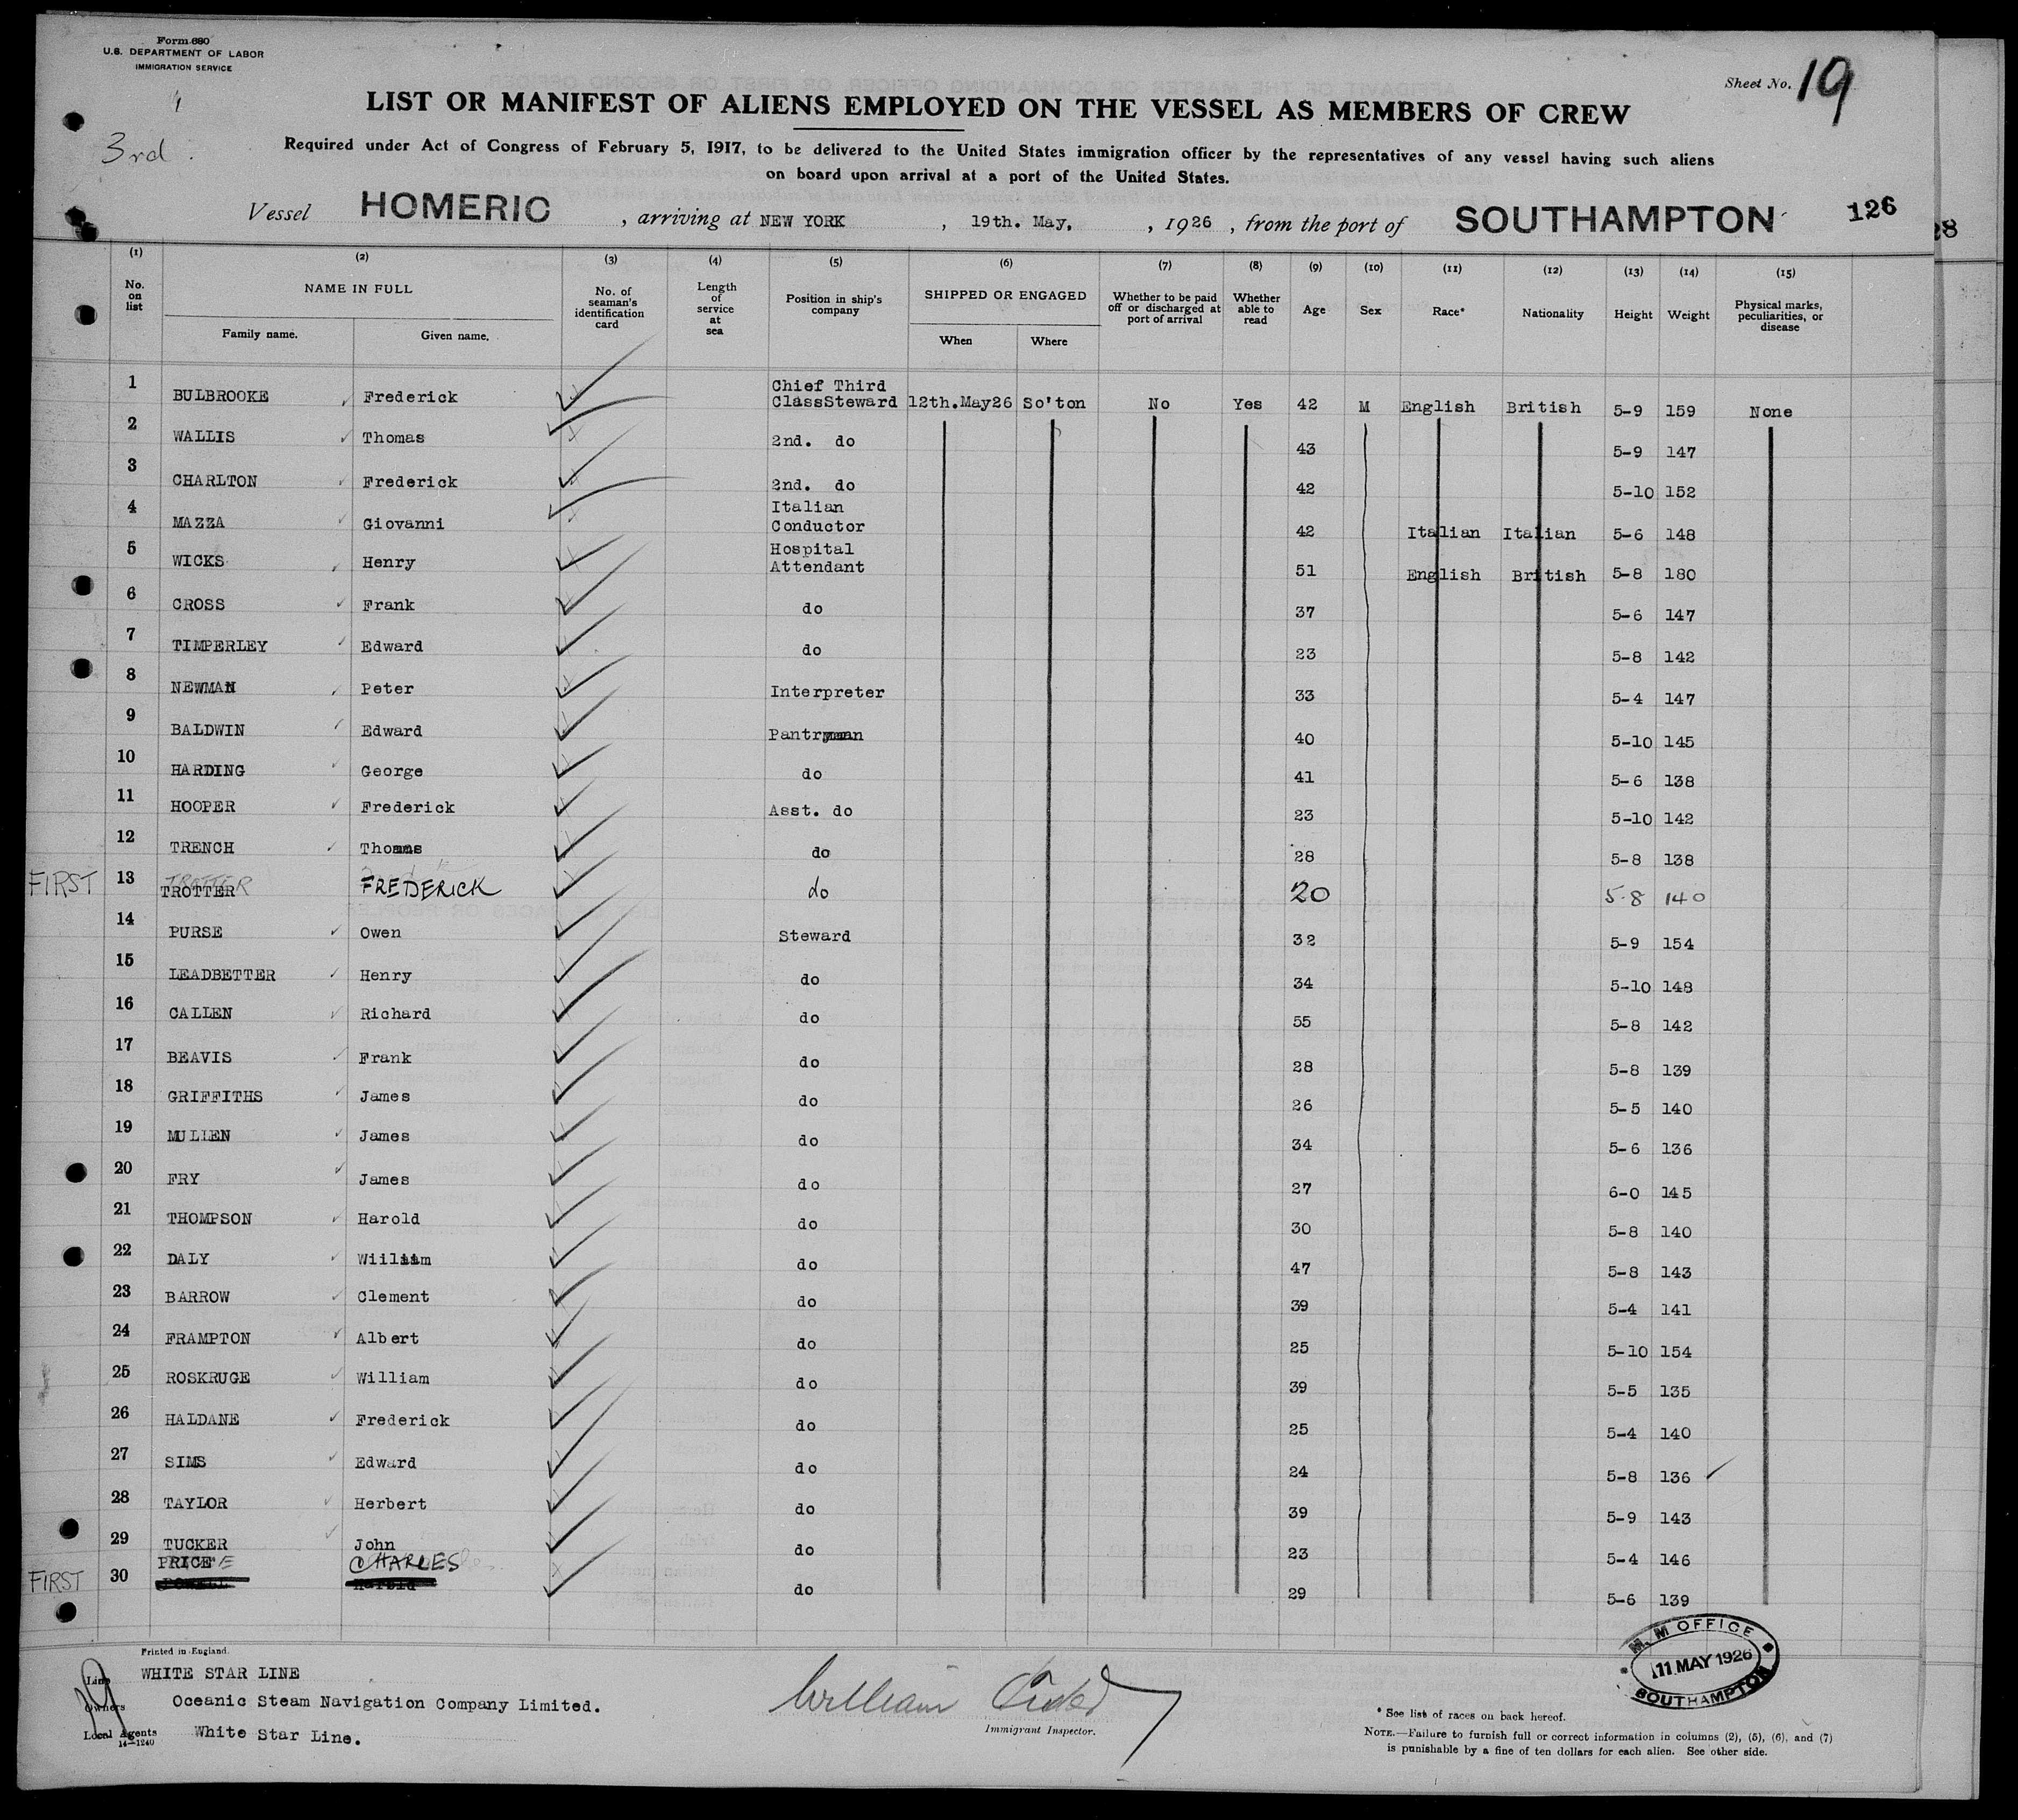 Form 680
U.S. DEPARTMENT OF LABOR
IMMIGRATION SERVICE
Sheet No. 19
LIST OR MANIFEST OF ALIENS EMPLOYED ON THE VESSEL AS MEMBERS OF CREW
3rd.
Required under Act of Congress of February 5, 1917, to be delivered to the United States immigration officer by the representatives of any vessel having such aliens
on board upon arrival at a port of the United States.
Vessel HOMERIC, arriving at NEW YORK, 19th. May, , 1926, from the port of SOUTHAMPTON 126
(1) (2) (3) (4) (5) (6) (7) (8) (9) (10) (11) (12) (13) (14) (15)
No. on list NAME IN FULL No. of seaman's identification card Length of service at sea Position in ship's company SHIPPED OR ENGAGED Whether to be paid off or discharged at port of arrival Whether able to read Age Sex Race* Nationality Height Weight Physical marks, peculiarities, or disease
Family name. Given name. When Where
1 BULBROOKE Frederick Chief Third ClassSteward 12th.May26 So'ton No Yes 42 M English British 5-9 159 None
2 WALLIS Thomas 2nd. do 43 5-9 147
3 CHARLTON Frederick 2nd. do 42 5-10 152
4 MAZZA Giovanni Italian Conductor 42 Italian Italian 5-6 148
5 WICKS Henry Hospital Attendant 51 English British 5-8 180
6 CROSS Frank do 37 5-6 147
7 TIMPERLEY Edward do 23 5-8 142
8 NEWMAN Peter Interpreter 33 5-4 147
9 BALDWIN Edward Pantryman 40 5-10 145
10 HARDING George do 41 5-6 138
11 HOOPER Frederick Asst. do 23 5-10 142
12 TRENCH Thomas do 28 5-8 138
FIRST 13 TROTTER FREDERICK do 20 5-8 140
14 PURSE Owen Steward 32 5-9 154
15 LEADBETTER Henry do 34 5-10 148
16 CALLEN Richard do 55 5-8 142
17 BEAVIS Frank do 28 5-8 139
18 GRIFFITHS James do 26 5-5 140
19 MULLEN James do 34 5-6 136
20 FRY James do 27 6-0 145
21 THOMPSON Harold do 30 5-8 140
22 DALY William do 47 5-8 143
23 BARROW Clement do 39 5-4 141
24 FRAMPTON Albert do 25 5-10 154
25 ROSKRUGE William do 39 5-5 135
26 HALDANE Frederick do 25 5-4 140
27 SIMS Edward do 24 5-8 136
28 TAYLOR Herbert do 39 5-9 143
29 TUCKER John do 23 5-4 146
FIRST 30 PRICE CHARLES do 29 5-6 139
Printed in England.
Line WHITE STAR LINE
Owners Oceanic Steam Navigation Company Limited.
Local Agents White Star Line.
14—1240
William
Immigrant Inspector.
M. M OFFICE
11 MAY 1926
SOUTHAMPTON
* See list of races on back hereof.
NOTE.—Failure to furnish full or correct information in columns (2), (5), (6), and (7)
is punishable by a fine of ten dollars for each alien. See other side.